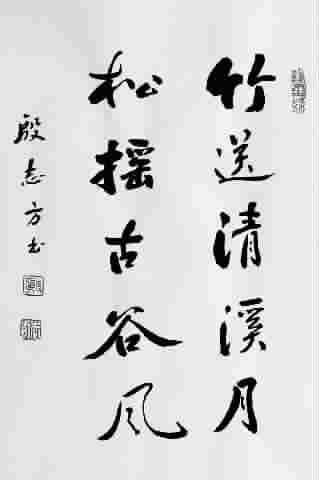 竹送清溪月
松摇古谷风
殷志方书